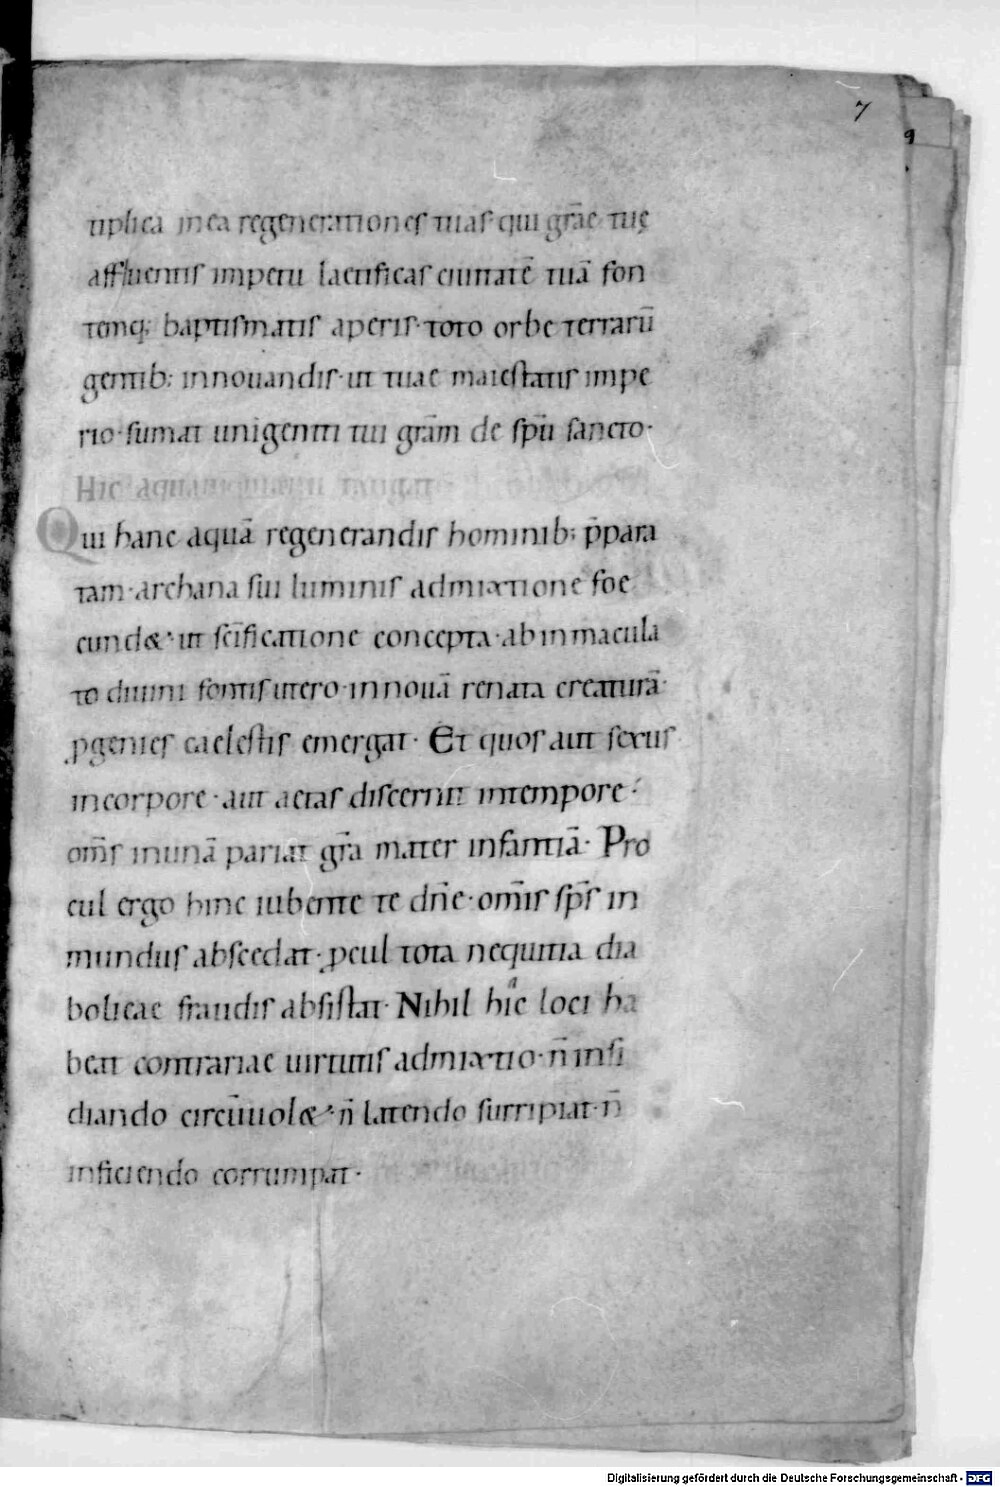 7
9
tiplica in ea regenerationes tuas· qui gr̄ae tuę
affluentis impetu laetificas ciuitatē tuā fon
temq; baptismatis aperis· toto orbe terrarū
gentib; innouandis· ut tuae maiestatis impe
rio· sumat unigeniti tui gr̄am de sp̄u sancto·
Hic aqua
Qui hanc aquā regenerandis hominib; p̄para
tam· archana sui luminis admixtione foe
cundet· ut sc̄ificatione concepta· ab inmacula
to diuini fontis utero· in nouā renata creaturā·
ꝓgenies caelestis emergat· Et quos aut sexus
in corpore· aut aetas discernit in tempore·
om̄s in unā pariat gr̄a mater infantiā· Pro
cul ergo hinc iubente te dn̄e· omīs sp̄s in
mundus abscedat· ꝓcul tota nequitia dia
bolicae fraudis absistat· Nihil hic loci ha
beat contrariae uirtutis admixtio· n̄ insi
diando circūuolet· n̄ latendo surripiat· n̄
inficiendo corrumpat·
Digitalisierung gefördert durch die Deutsche Forschungsgemeinschaft - DFG